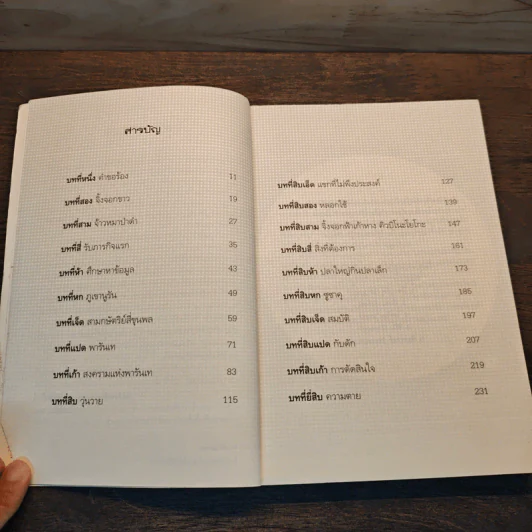 สารบัญ
บทที่หนึ่ง คำขอร้อง 11
บทที่สอง จิ้งจอกขาว 19
บทที่สาม จ้าวหมาป่าดำ 27
บทที่สี่ รับภารกิจแรก 35
บทที่ห้า ศึกษาหาข้อมูล 43
บทที่หก ภูเขานูรัน 49
บทที่เจ็ด สามกษัตริย์สี่ขุนพล 59
บทที่แปด พารันเท 71
บทที่เก้า สงครามแห่งพารันเท 83
บทที่สิบ วุ่นวาย 115
บทที่สิบเอ็ด แขกที่ไม่พึงประสงค์ 127
บทที่สิบสอง หลอกใช้ 139
บทที่สิบสาม จิ้งจอกฟ้าเก้าหาง คิวบิโนะโยโกะ 147
บทที่สิบสี่ สิ่งที่ต้องการ 161
บทที่สิบห้า ปลาใหญ่กินปลาเล็ก 173
บทที่สิบหก ชูชาคุ 185
บทที่สิบเจ็ด สมบัติ 197
บทที่สิบแปด กับดัก 207
บทที่สิบเก้า การตัดสินใจ 219
บทที่ยี่สิบ ความตาย 231